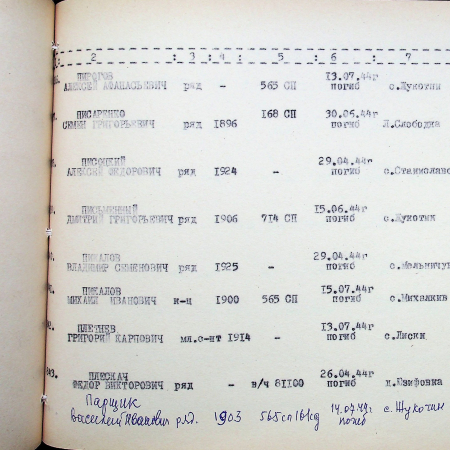 2 : 3 : 4 : 5 : 6 : 7
ПИРОГОВ 13.07.44г
АЛЕКСЕЙ АФАНАСЬЕВИЧ ряд - 565 СП погиб с.Жукотин
ПИСАРЕНКО 168 СП 30.06.44г
СЕМЕН ГРИГОРЬЕВИЧ ряд 1896 погиб Л.Слободка
ПИСОЦКИЙ 29.04.44г
АЛЕКСЕЙ ФЕДОРОВИЧ ряд 1924 - погиб с.Станиславо
ПИСЬМЕННЫЙ 15.06.44г
ДМИТРИЙ ГРИГОРЬЕВИЧ ряд 1906 714 СП погиб с.Жукотин
ПИКАЛОВ 29.04.44г
ВЛАДИМИР СЕМЕНОВИЧ ряд 1925 - погиб с.Мельничу
ПИКАЛОВ 15.07.44г
МИХАИЛ ИВАНОВИЧ к-ц 1900 565 СП погиб с.Михалкив
ПЛЕТНЕВ 13.07.44г
ГРИГОРИЙ КАРПОВИЧ мл.с-нт 1914 - погиб с.Лиски
ПЛЕСКАЧ 26.04.44г
ФЕДОР ВИКТОРОВИЧ ряд - в/ч 81100 погиб и.Юзифовка
Паращик 14.07.44г
Василий Иванович ряд. 1903 565сп161сд погиб с. Жукотин